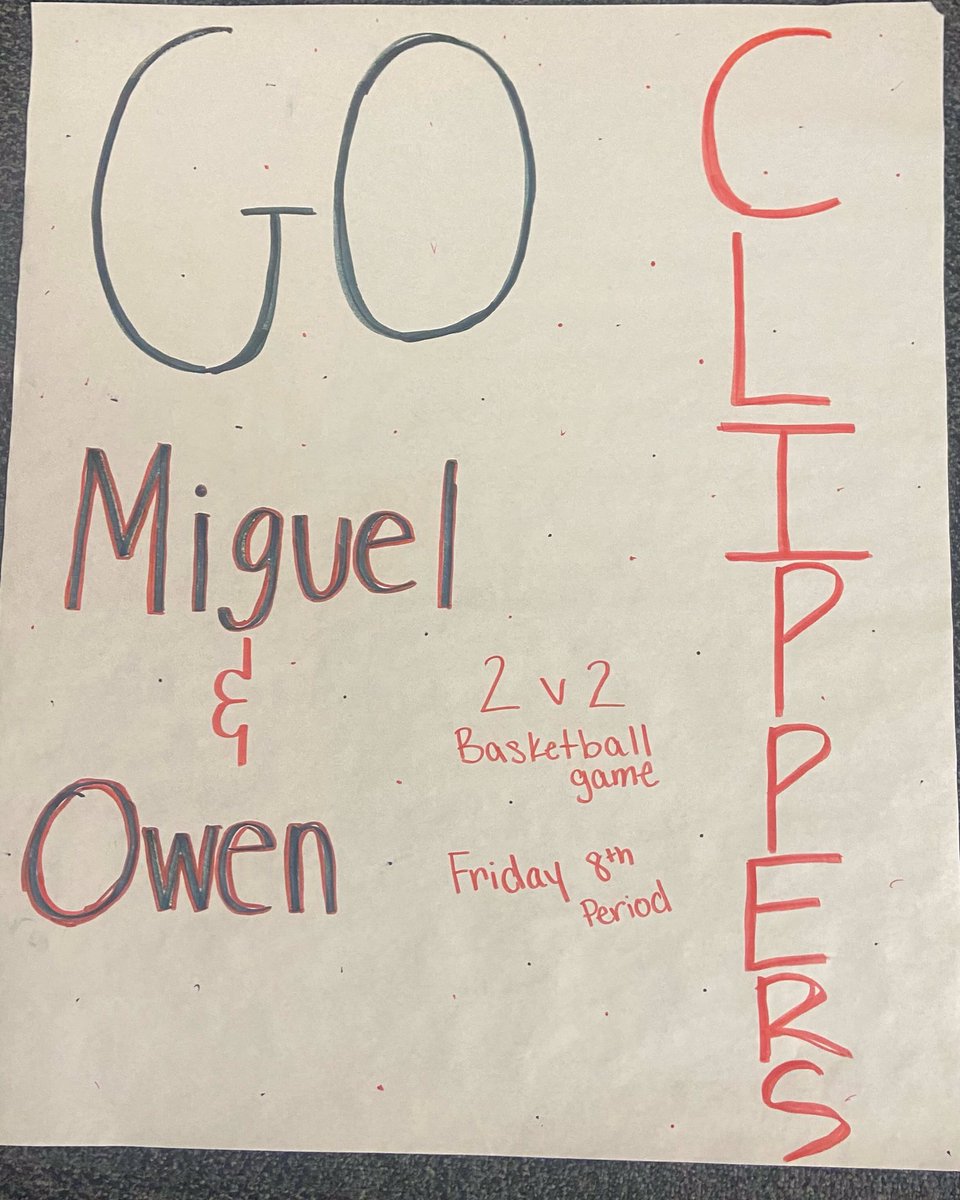 GO
CLIPPERS
Miguel
&
Owen
2 v 2
Basketball
game
Friday 8th
Period